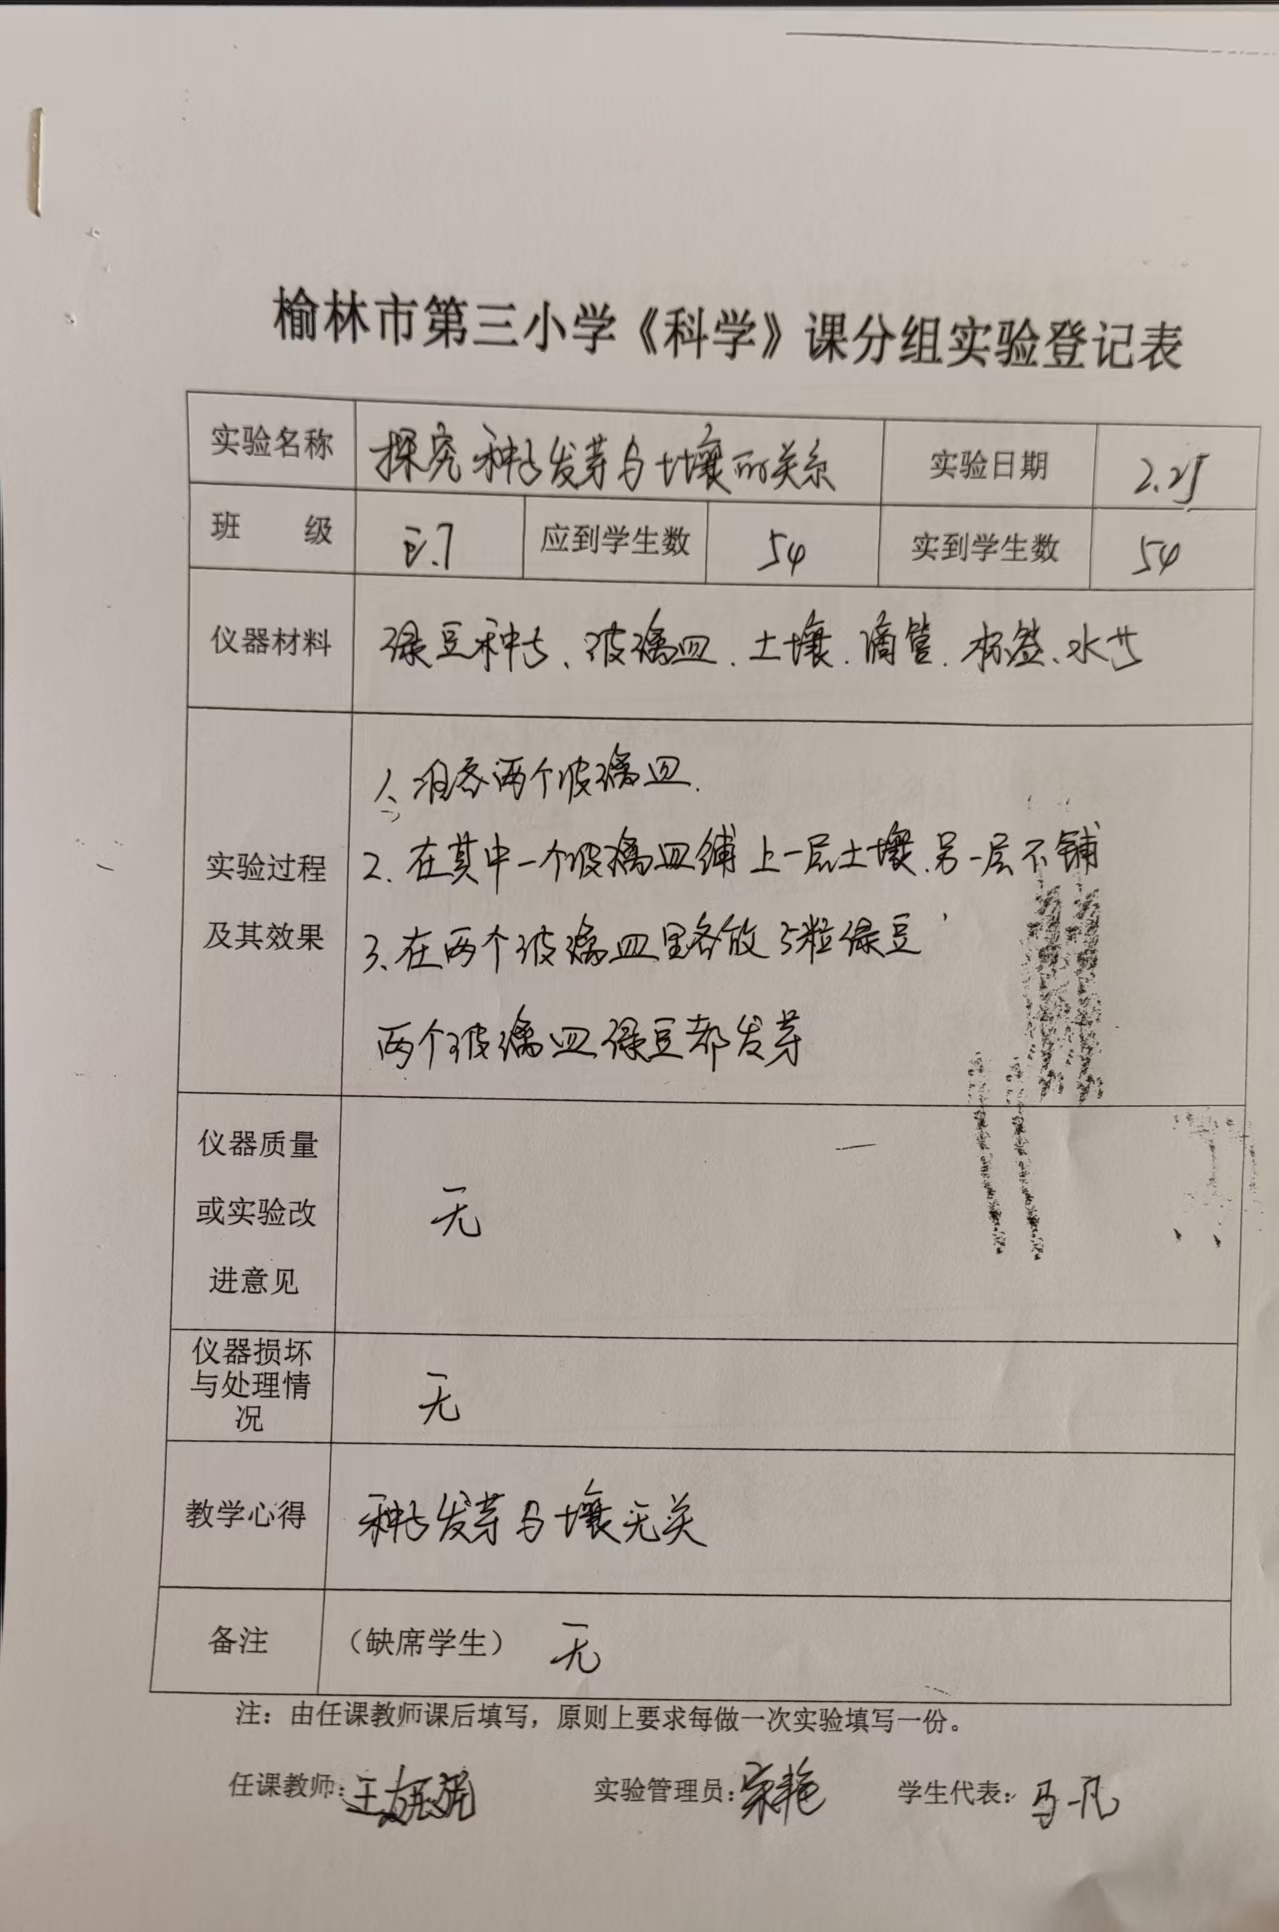 榆林市第三小学《科学》课分组实验登记表
实验名称 探究种子发芽与土壤的关系 实验日期 2.25
班 级 五.7 应到学生数 54 实到学生数 54
仪器材料 绿豆种子、玻璃皿、土壤、滴管、标签、水等
实验过程
及其效果
1、准备两个玻璃皿.
2、在其中一个玻璃皿铺上一层土壤.另一层不铺
3、在两个玻璃皿里各放5粒绿豆
两个玻璃皿绿豆都发芽
仪器质量
或实验改
进意见
无
仪器损坏
与处理情
况
无
教学心得 种子发芽与土壤无关
备注 （缺席学生） 无
注：由任课教师课后填写，原则上要求每做一次实验填写一份。
任课教师：王 实验管理员：宋艳 学生代表：马一凡